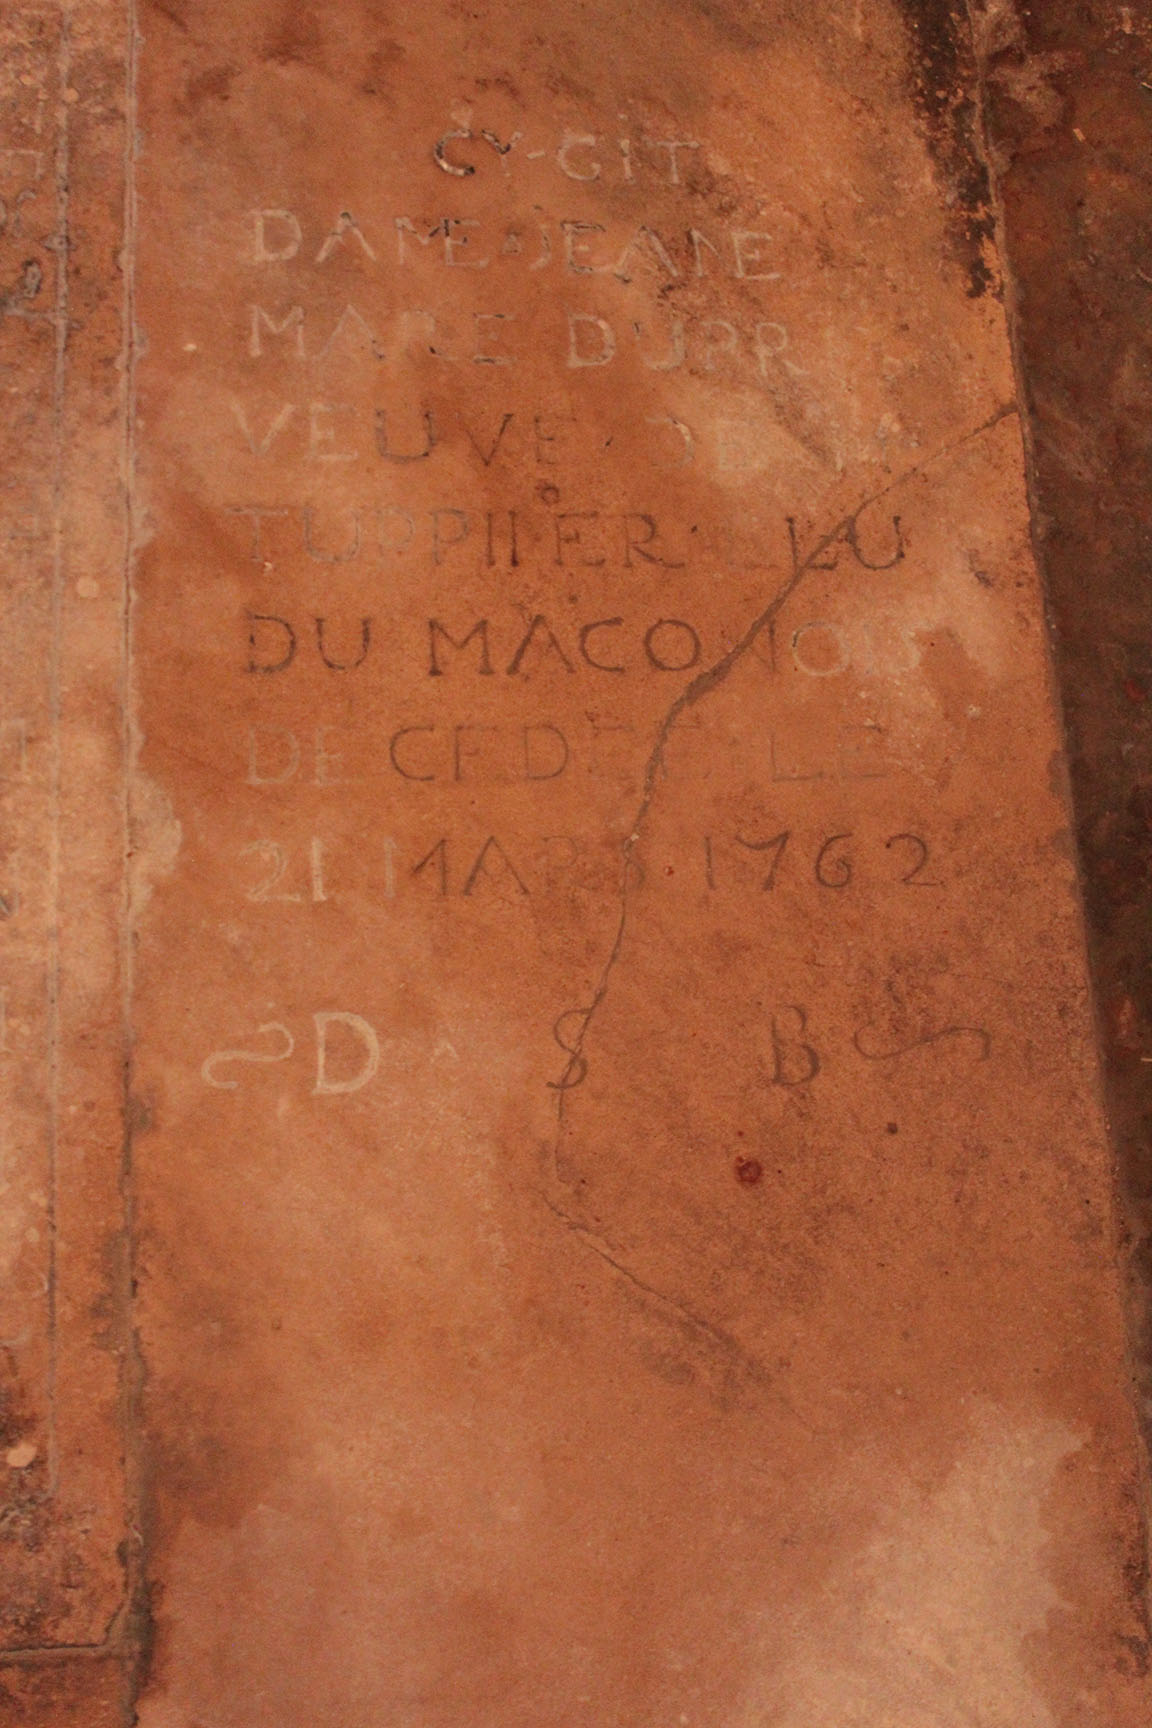 CY-GIT
DAME JEANE
MARIE DUPR
VEUVE DE Mr
TUPPINIER ELU
DU MACONOIS
DECEDEE LE
21 MARS 1762
D S B